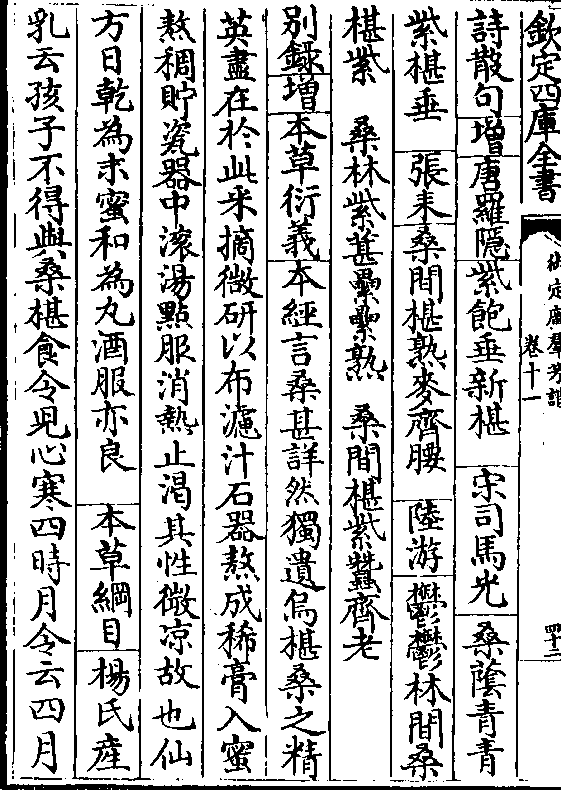 欽定四庫全書
御定廣羣芳譜
卷十一
四十二
詩散句增唐羅隱紫飽垂新椹　宋司馬光　桑蔭青青
紫椹垂　張耒桑間椹熟麥齊腰　陸游鬱鬱林間桑
椹紫　桑林紫葚纍纍熟　桑間椹紫蠶齊老
别録增本草衍義本經言桑甚詳然獨遺烏椹桑之精
英盡在於此采摘微研以布濾汁石器熬成稀膏入蜜
熬稠貯瓷器中滚湯點服消熱止渴其性微凉故也仙
方日乾為末蜜和為丸酒服亦良　本草綱目楊氏產
乳云孩子不得與桑椹食令児心寒四時月令云四月